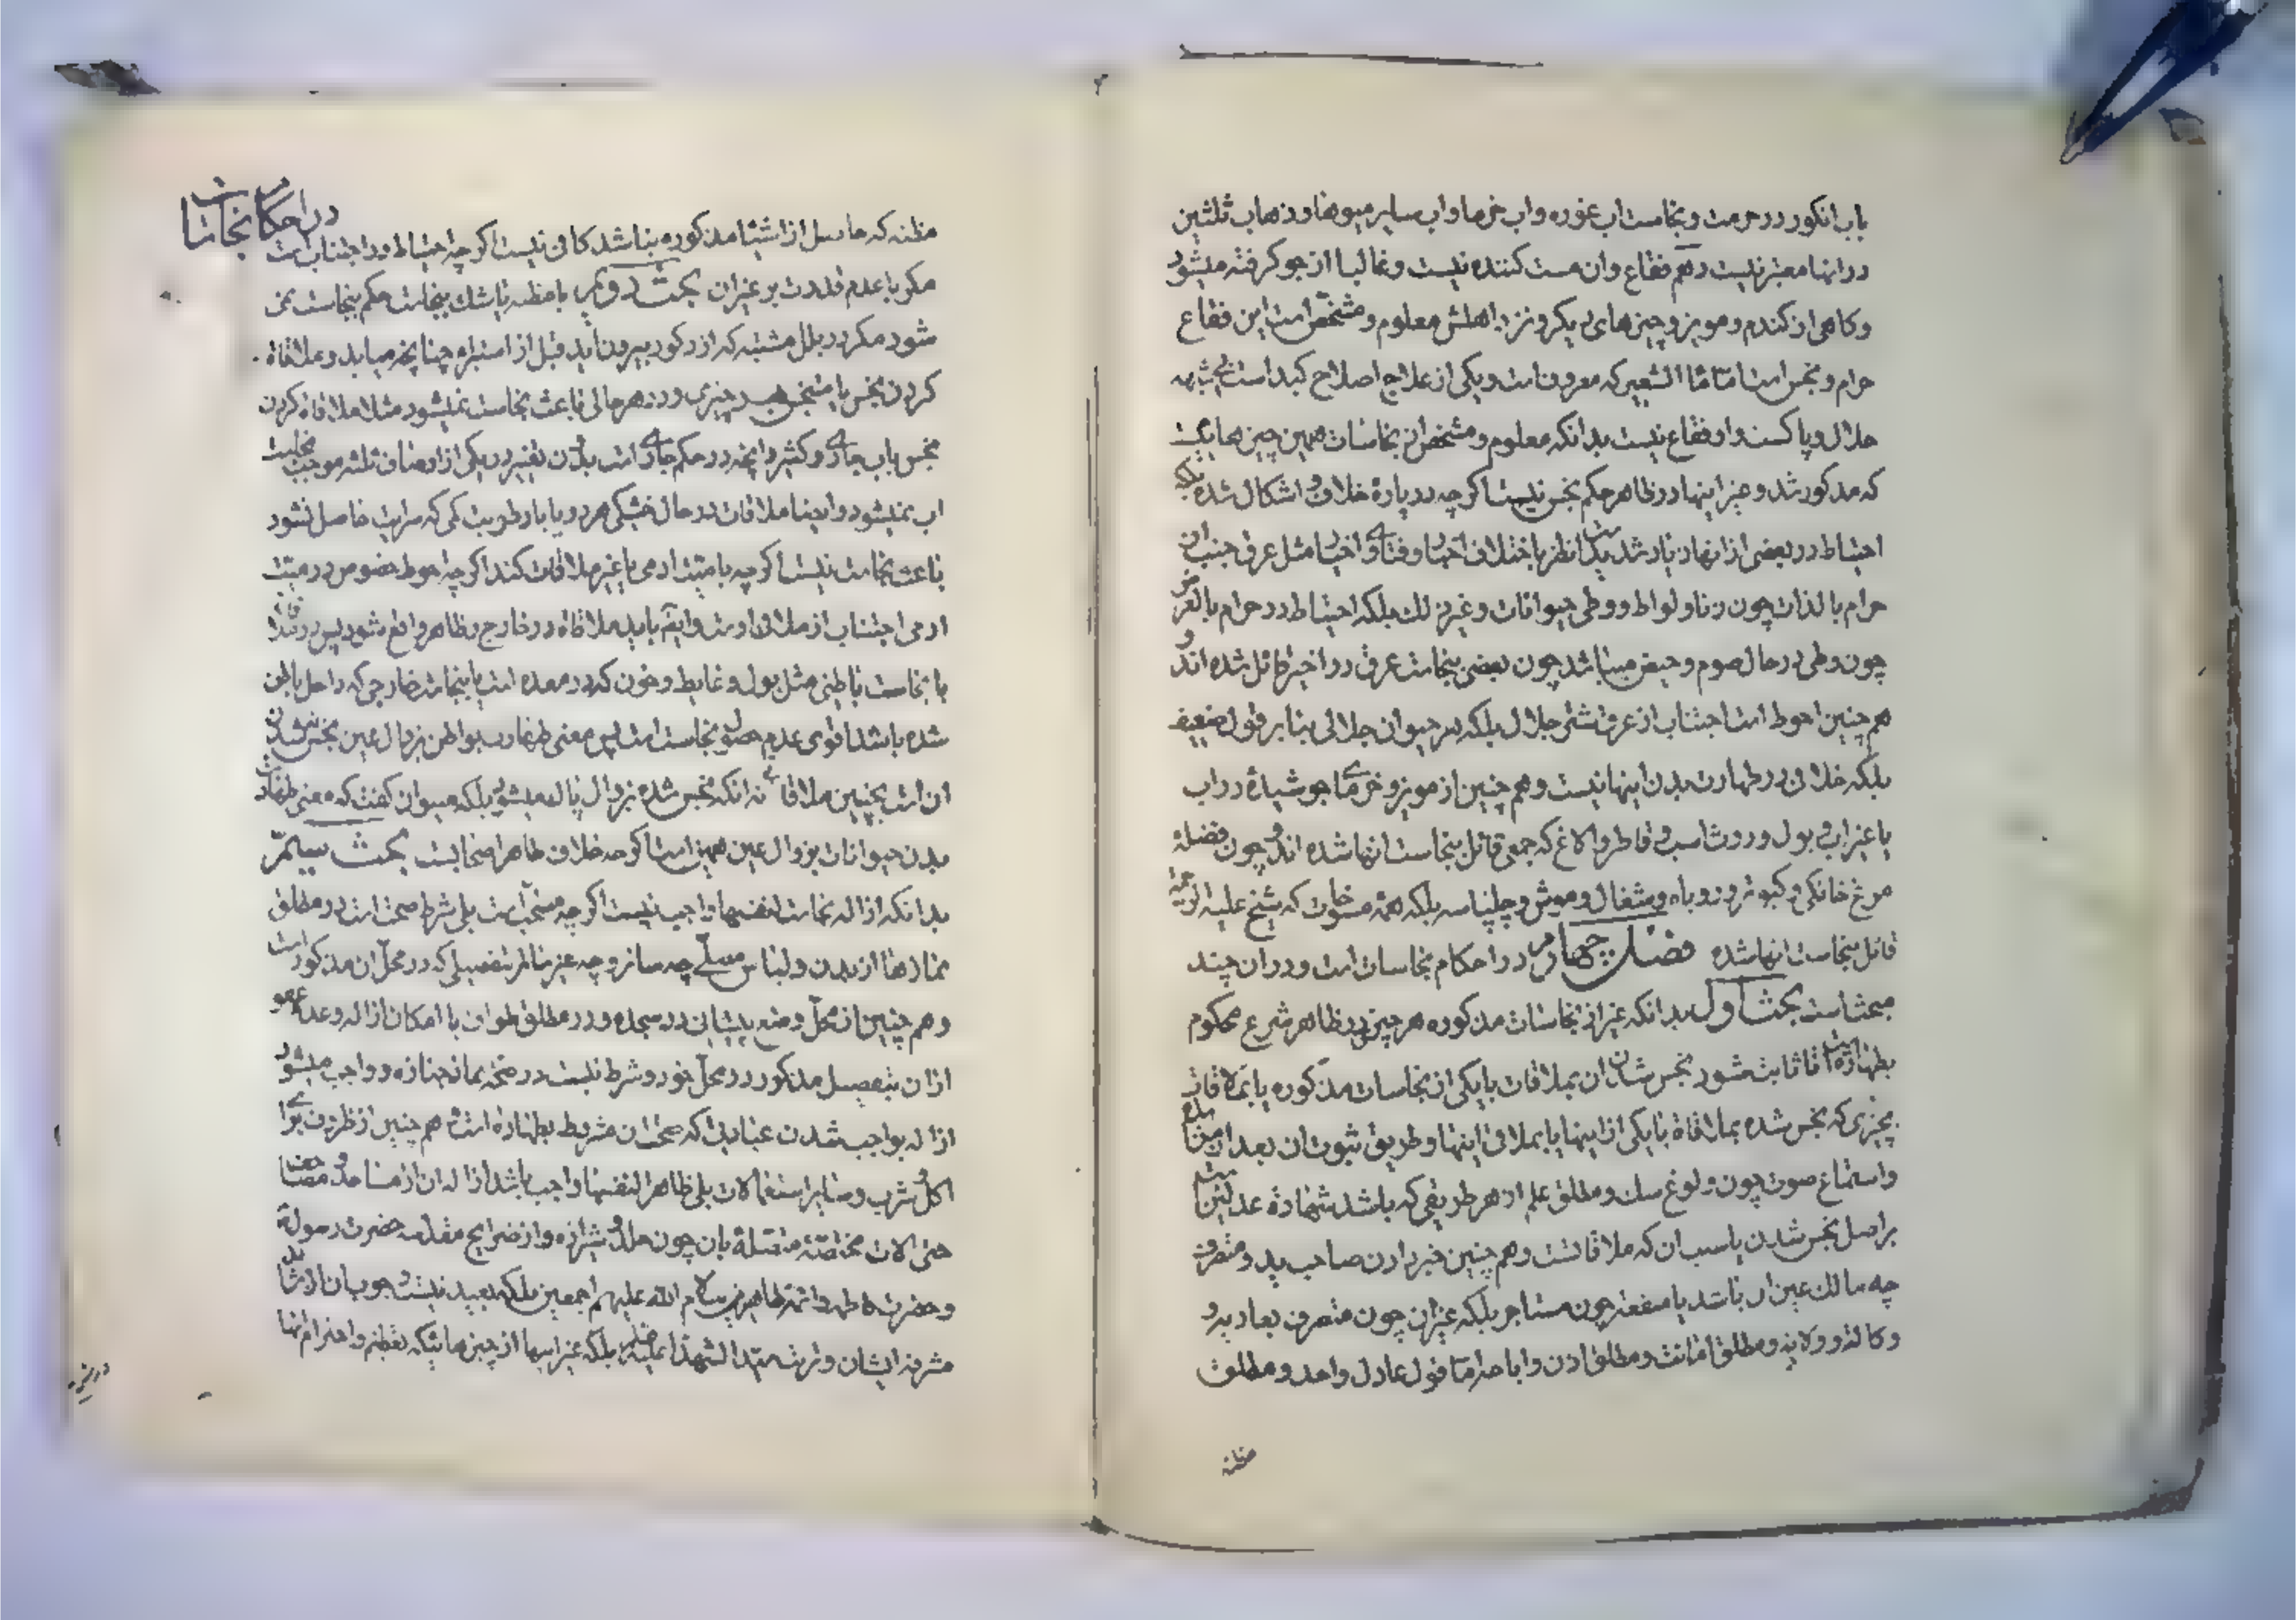 باب انکور در حرمت و نجاست اب غوره و اب خرما و اب سایر میوها و ذهاب ثلثین
در انها معتبر نیست دهم فقاع و ان مست کننده نیست و غالبا از جو کرفته میشود
و کاهی از کندم و مویز و چیزهای دیکر و نزد اهلش معلوم و مشخص است این فقاع
حرام و نجس است اما ماء الشعیر که معروفست و یکی از علاج اصلاح کبد است
حلال و پاکست و او فقاع نیست بدانکه معلوم و مشخص از نجاسات همین چیزهائیست
که مذکور شد و غیر اینها در ظاهر حکم نجس نیست اکرچه در پارهٔ خلاف و اشکال شده بلکه
احتیاط در بعضی از انها زیاد شدید است نظر باختلاف اخبار و فتاوی اخیار مثل عرق جنب از
حرام بالذات چون زنا و لواط و وطی حیوانات و غیر ذلک بلکه احتیاط در حرام بالعرض
چون وطی در حال صوم و حیض میباشد چون بعضی بنجاست عرق در اخیر قائل شده اند و
همچنین احوط است اجتناب از عرق شتر جلال بلکه هر حیوان جلالی بنا بر قول ضعیف
بلکه خلافی در طهارت بدن اینها نیست و همچنین از مویز و خرمای جوشیده در اب
یا غیر اب و بول و روث اسب و قاطر و الاغ که جمعی قائل بنجاست انها شده اند و چون فضلهٔ
مرغ خانکی و کبوتر و روباه و شغال و موش و چلپاسه بلکه همه مسوخات که شیخ علیه الرحمه
قائل بنجاست انها شده فصل چهارم در احکام نجاسات است و در ان چند
مبحث است بحث اول بدانکه غیر از نجاسات مذکوره هر چیزی در ظاهر شرع محکوم
بطهارة است تا ثابت شود نجس شدن ان بملاقات با یکی از نجاسات مذکوره یا بملاقات
بچیزی که نجس شده بملاقاة با یکی از اینها یا بملاقی اینها و طریق ثبوت ان بعد از
و استماع صوت چون ولوغ سک و مطلق علم از هر طریقی که باشد شهادة عدلین
بر اصل نجس شدن یا سبب ان که ملاقاتست و همچنین خبر دادن صاحب ید و متصرف
چه مالک عین ان باشد یا منفعت چون مستاجر بلکه غیر ان چون متصرف بعاریه و
وکالة و ولایة و مطلق امانت و مطلق اذن و اباحه اما قول عادل واحد و مطلق
مظنه
در احکام نجاسات
مظنه که حاصل از اشیاء مذکوره نباشد کافی نیست اکرچه احتیاط در اجتنابست
مکر با عدم قدرت بر غیر ان بحث دویم با مظنه یا شک بنجاست حکم بنجاست نمی
شود مکر در بلل مشتبه که از ذکور بیرون آید قبل از استبراء چنانچه میاید و ملاقاة
کردن نجس یا متنجس بهر چیزی و در هر حالی باعث نجاست نمیشود مثلا ملاقاة کردن
نجس باب جاری و کثیر و انچه در حکم جاری است بدون تغییر در یکی از اوصاف ثلثه موجب نجاست
اب نمیشود و ایضا ملاقات در حال خشکی هر دو یا با رطوبت کمی که سرایت حاصل نشود
باعث نجاست نیست اکرچه با میت ادمی یا غیر ملاقات کند اکرچه احوط خصوص در میت
ادمی اجتناب از ملاقی اوست و ایضا باید ملاقاة در خارج و ظاهر واقع شود پس در
با نجاست باطنی مثل بول و غایط و خون که در معده است یا نجاست خارجی که داخل باطن
شده باشد اقوی عدم حصول نجاست است پس معنی طهارت بواطن بزوال عین نجس نشدن
ان است بچنین ملاقاتی نه انکه نجس شده بزوال پاک میشود بلکه میتوان کفت که معنی طهارت
بدن حیوانات بزوال عین همین است اکرچه خلاف ظاهر اصحابست بحث سیم
بدانکه ازاله نجاست لنفسها واجب نیست اکرچه مستحب است بلی شرط صحت است در مطلق
نمازها از بدن و لباس مصلی چه ساتر و چه غیر ساتر بتفصیلی که در محل ان مذکور است
و همچنین از محل وضع پیشانی در سجده و در مطلق طواف با امکان ازاله و عدم عفو
از ان بتفصیل مذکور در محل خود و شرط نیست در صحة نماز جنازه و واجب میشود
ازاله بواجب شدن عبادتی که صحة ان مشروط بطهارة است و همچنین از ظروف برای
اکل و شرب و سایر استعمالات بلی ظاهرا لنفسها واجب باشد ازاله ان از مساجد و مصحف
حتی الات مختصهٔ متصلهٔ بان چون جلد و شیرازه و از ضرایح مقدسه حضرت رسول
و حضرت فاطمه و ائمه طاهرین سلام الله علیهم اجمعین بلکه بعید نیست وجوب ان از
مشرفه ایشان و تربت سید الشهداء علیه السلام بلکه غیر اینها از چیزهائیکه تعظیم و احترام انها